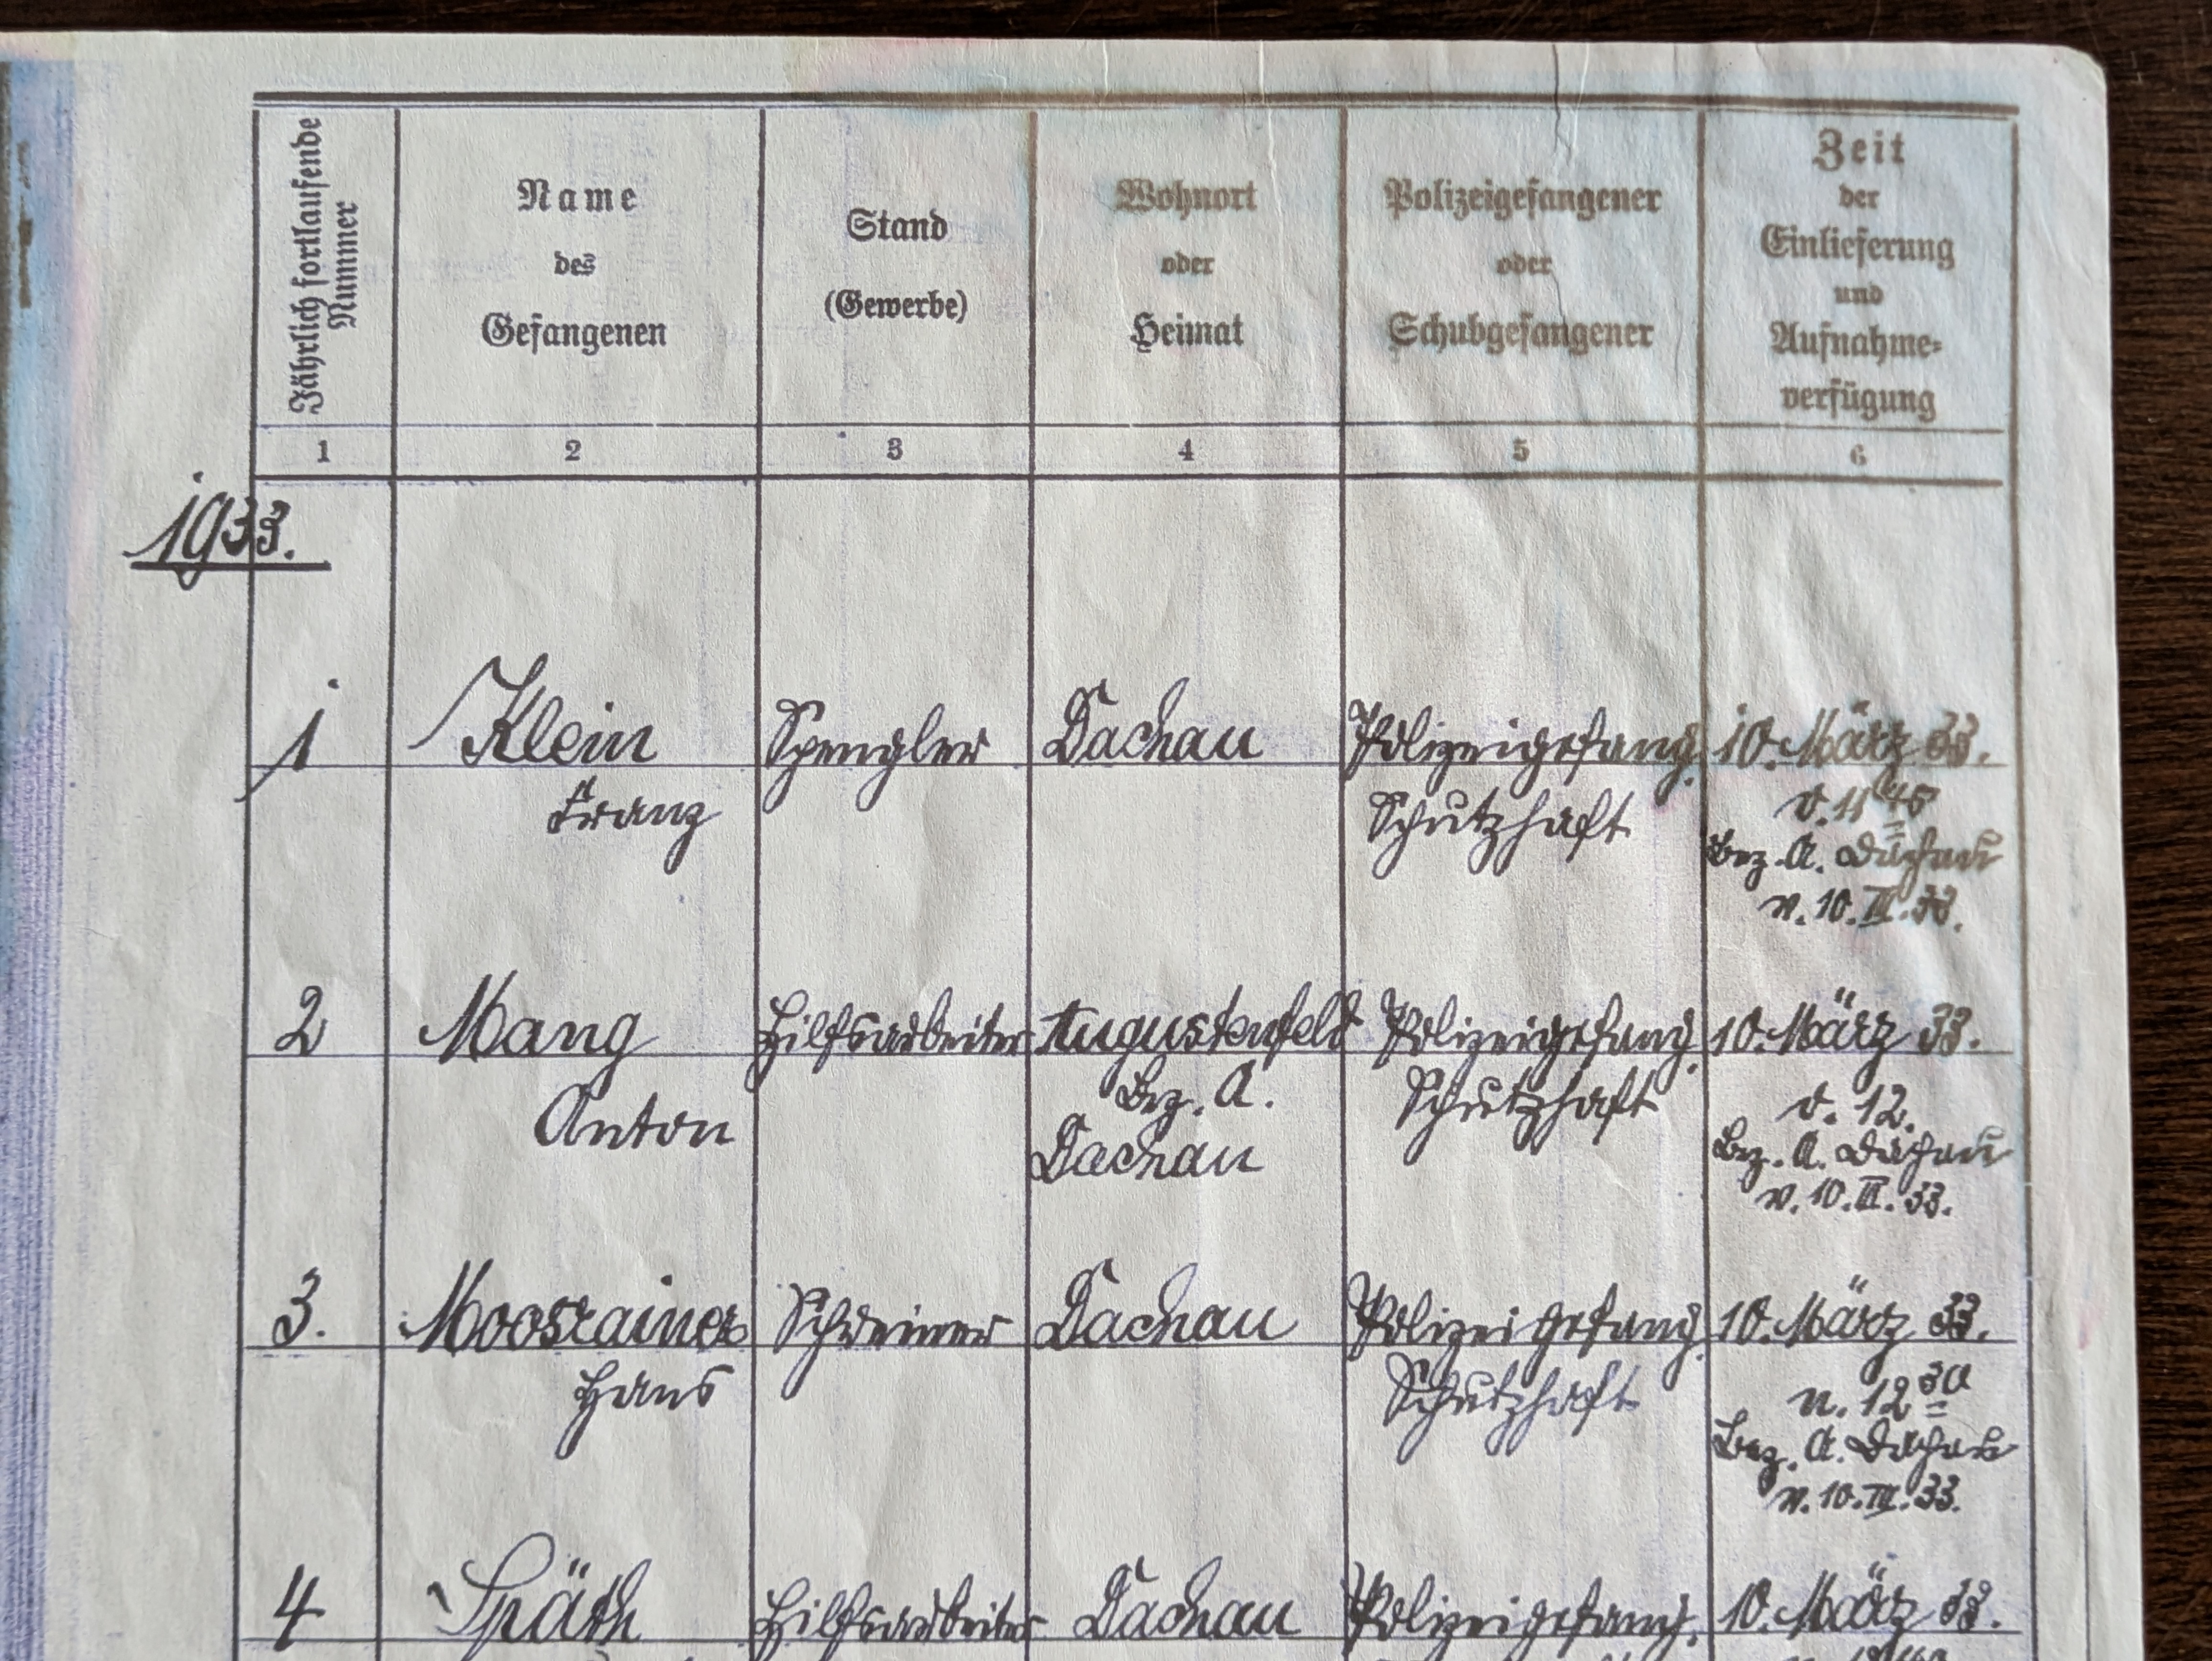 Jährlich fortlaufende
Nummer
Name
des
Gefangenen
Stand
(Gewerbe)
Wohnort
oder
Heimat
Polizeigefangener
oder
Schubgefangener
Zeit
der
Einlieferung
und
Aufnahme-
verfügung
1 2 3 4 5 6
1933.
1 Klein Spengler Dachau Polizeigefang. 10. März 33.
Franz Schutzhaft v. 11 45
Bez. A. Dachau
v. 10. III. 33.
2 Mang Hilfsarbeiter Augustenfeld Polizeigefang. 10. März 33.
Anton Bez. A. Schutzhaft v. 12.
Dachau Bez. A. Dachau
v. 10. III. 33.
3. Moosrainer Schreiner Dachau Polizeigefang. 10. März 33.
Hans Schutzhaft n. 12 30
Bez. A. Dachau
v. 10. III. 33.
4 Späth Hilfsarbeiter Dachau Polizeigefang. 10. März 33.